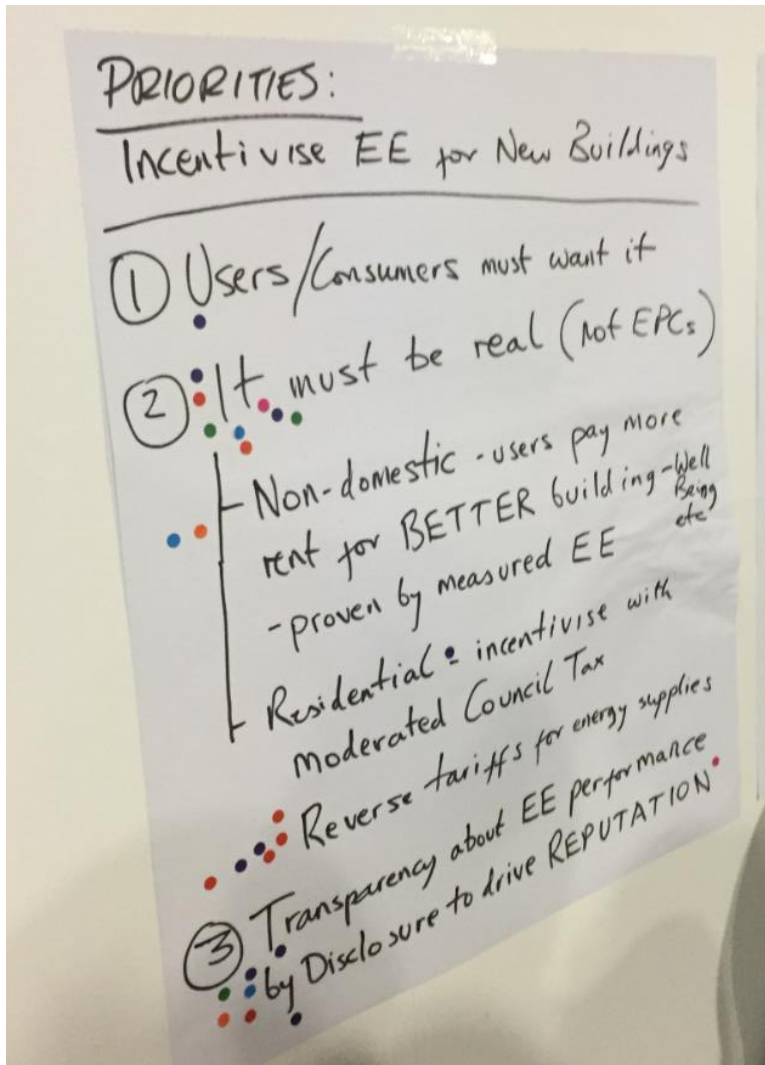 PRIORITIES:
Incentivise EE for New Buildings
① Users/Consumers must want it
② It must be real (not EPCs)
Non-domestic - users pay more
rent for BETTER building - Well
Being
etc
- proven by measured EE
Residential - incentivise with
moderated Council Tax
Reverse tariffs for energy supplies
③ Transparency about EE performance
by Disclosure to drive REPUTATION